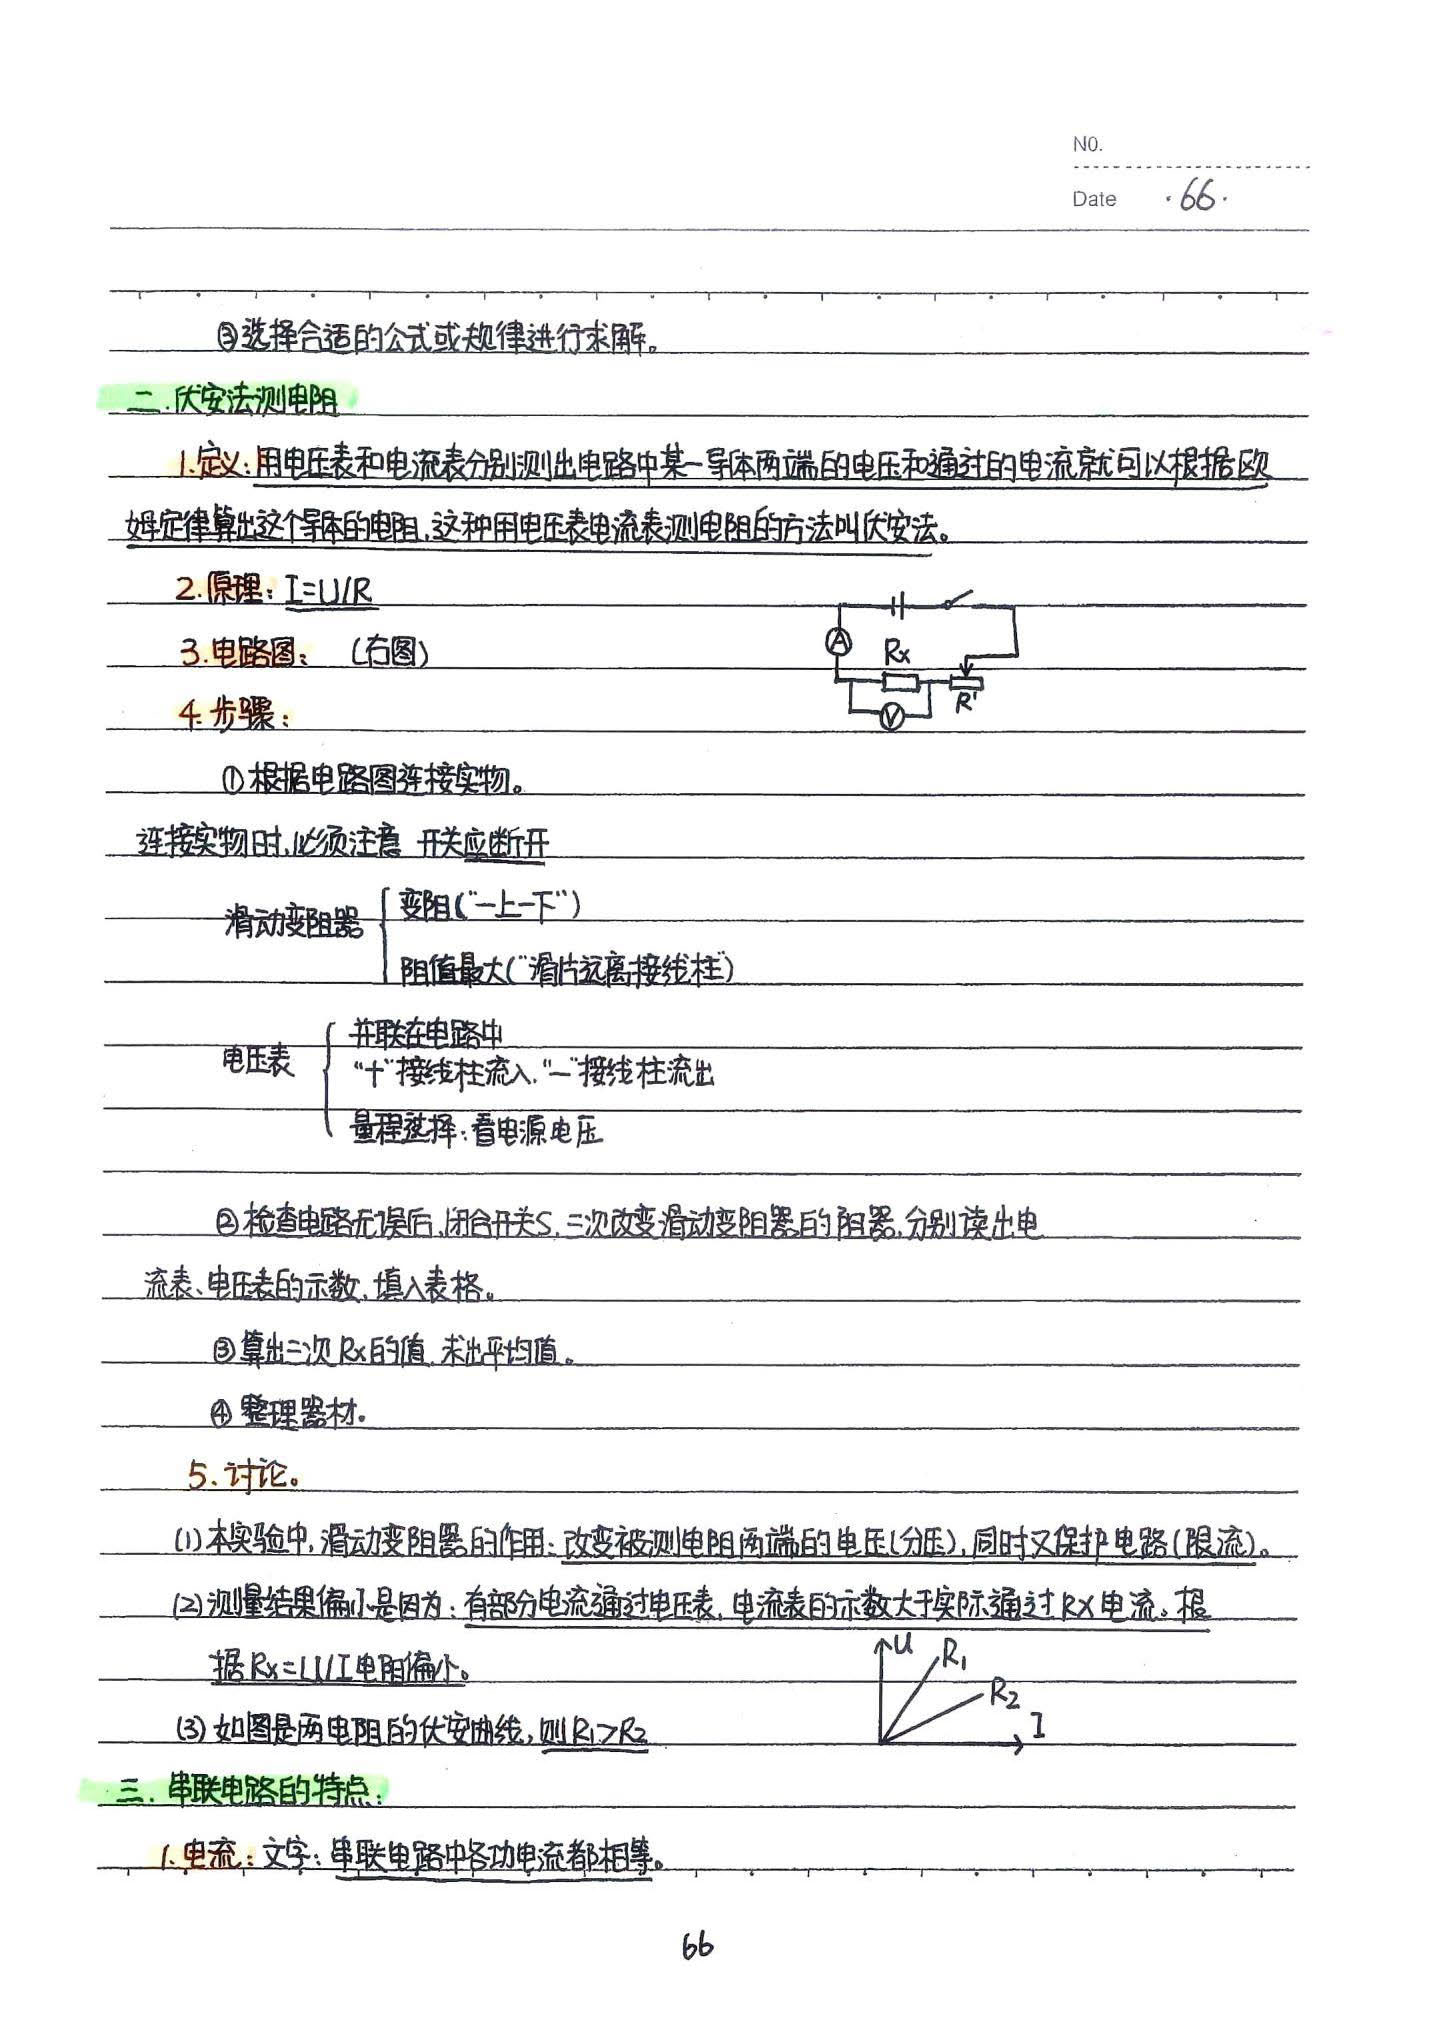 NO.
Date ·66·
③选择合适的公式或规律进行求解。
二.伏安法测电阻
1.定义:用电压表和电流表分别测出电路中某一导体两端的电压和通过的电流就可以根据欧
姆定律算出这个导体的电阻,这种用电压表电流表测电阻的方法叫伏安法。
2.原理:I=U/R
3.电路图: (右图)
A Rx
V R'
4.步骤:
①根据电路图连接实物。
连接实物时,必须注意 开关应断开
变阻("一上一下")
滑动变阻器
阻值最大("滑片远离接线柱)
并联在电路中
电压表
"+"接线柱流入,"—"接线柱流出
量程选择:看电源电压
②检查电路无误后,闭合开关S,三次改变滑动变阻器的阻器,分别读出电
流表、电压表的示数,填入表格。
③算出三次Rx的值,求出平均值。
④整理器材.
5.讨论。
(1)本实验中,滑动变阻器的作用:改变被测电阻两端的电压(分压),同时又保护电路(限流)。
(2)测量结果偏小是因为:有部分电流通过电压表,电流表的示数大于实际通过RX电流。根
据Rx=U/I电阻偏小。
(3)如图是两电阻的伏安曲线,则R1>R2
U R1
R2
I
三.串联电路的特点:
1.电流:文字:串联电路中各功电流都相等。
66